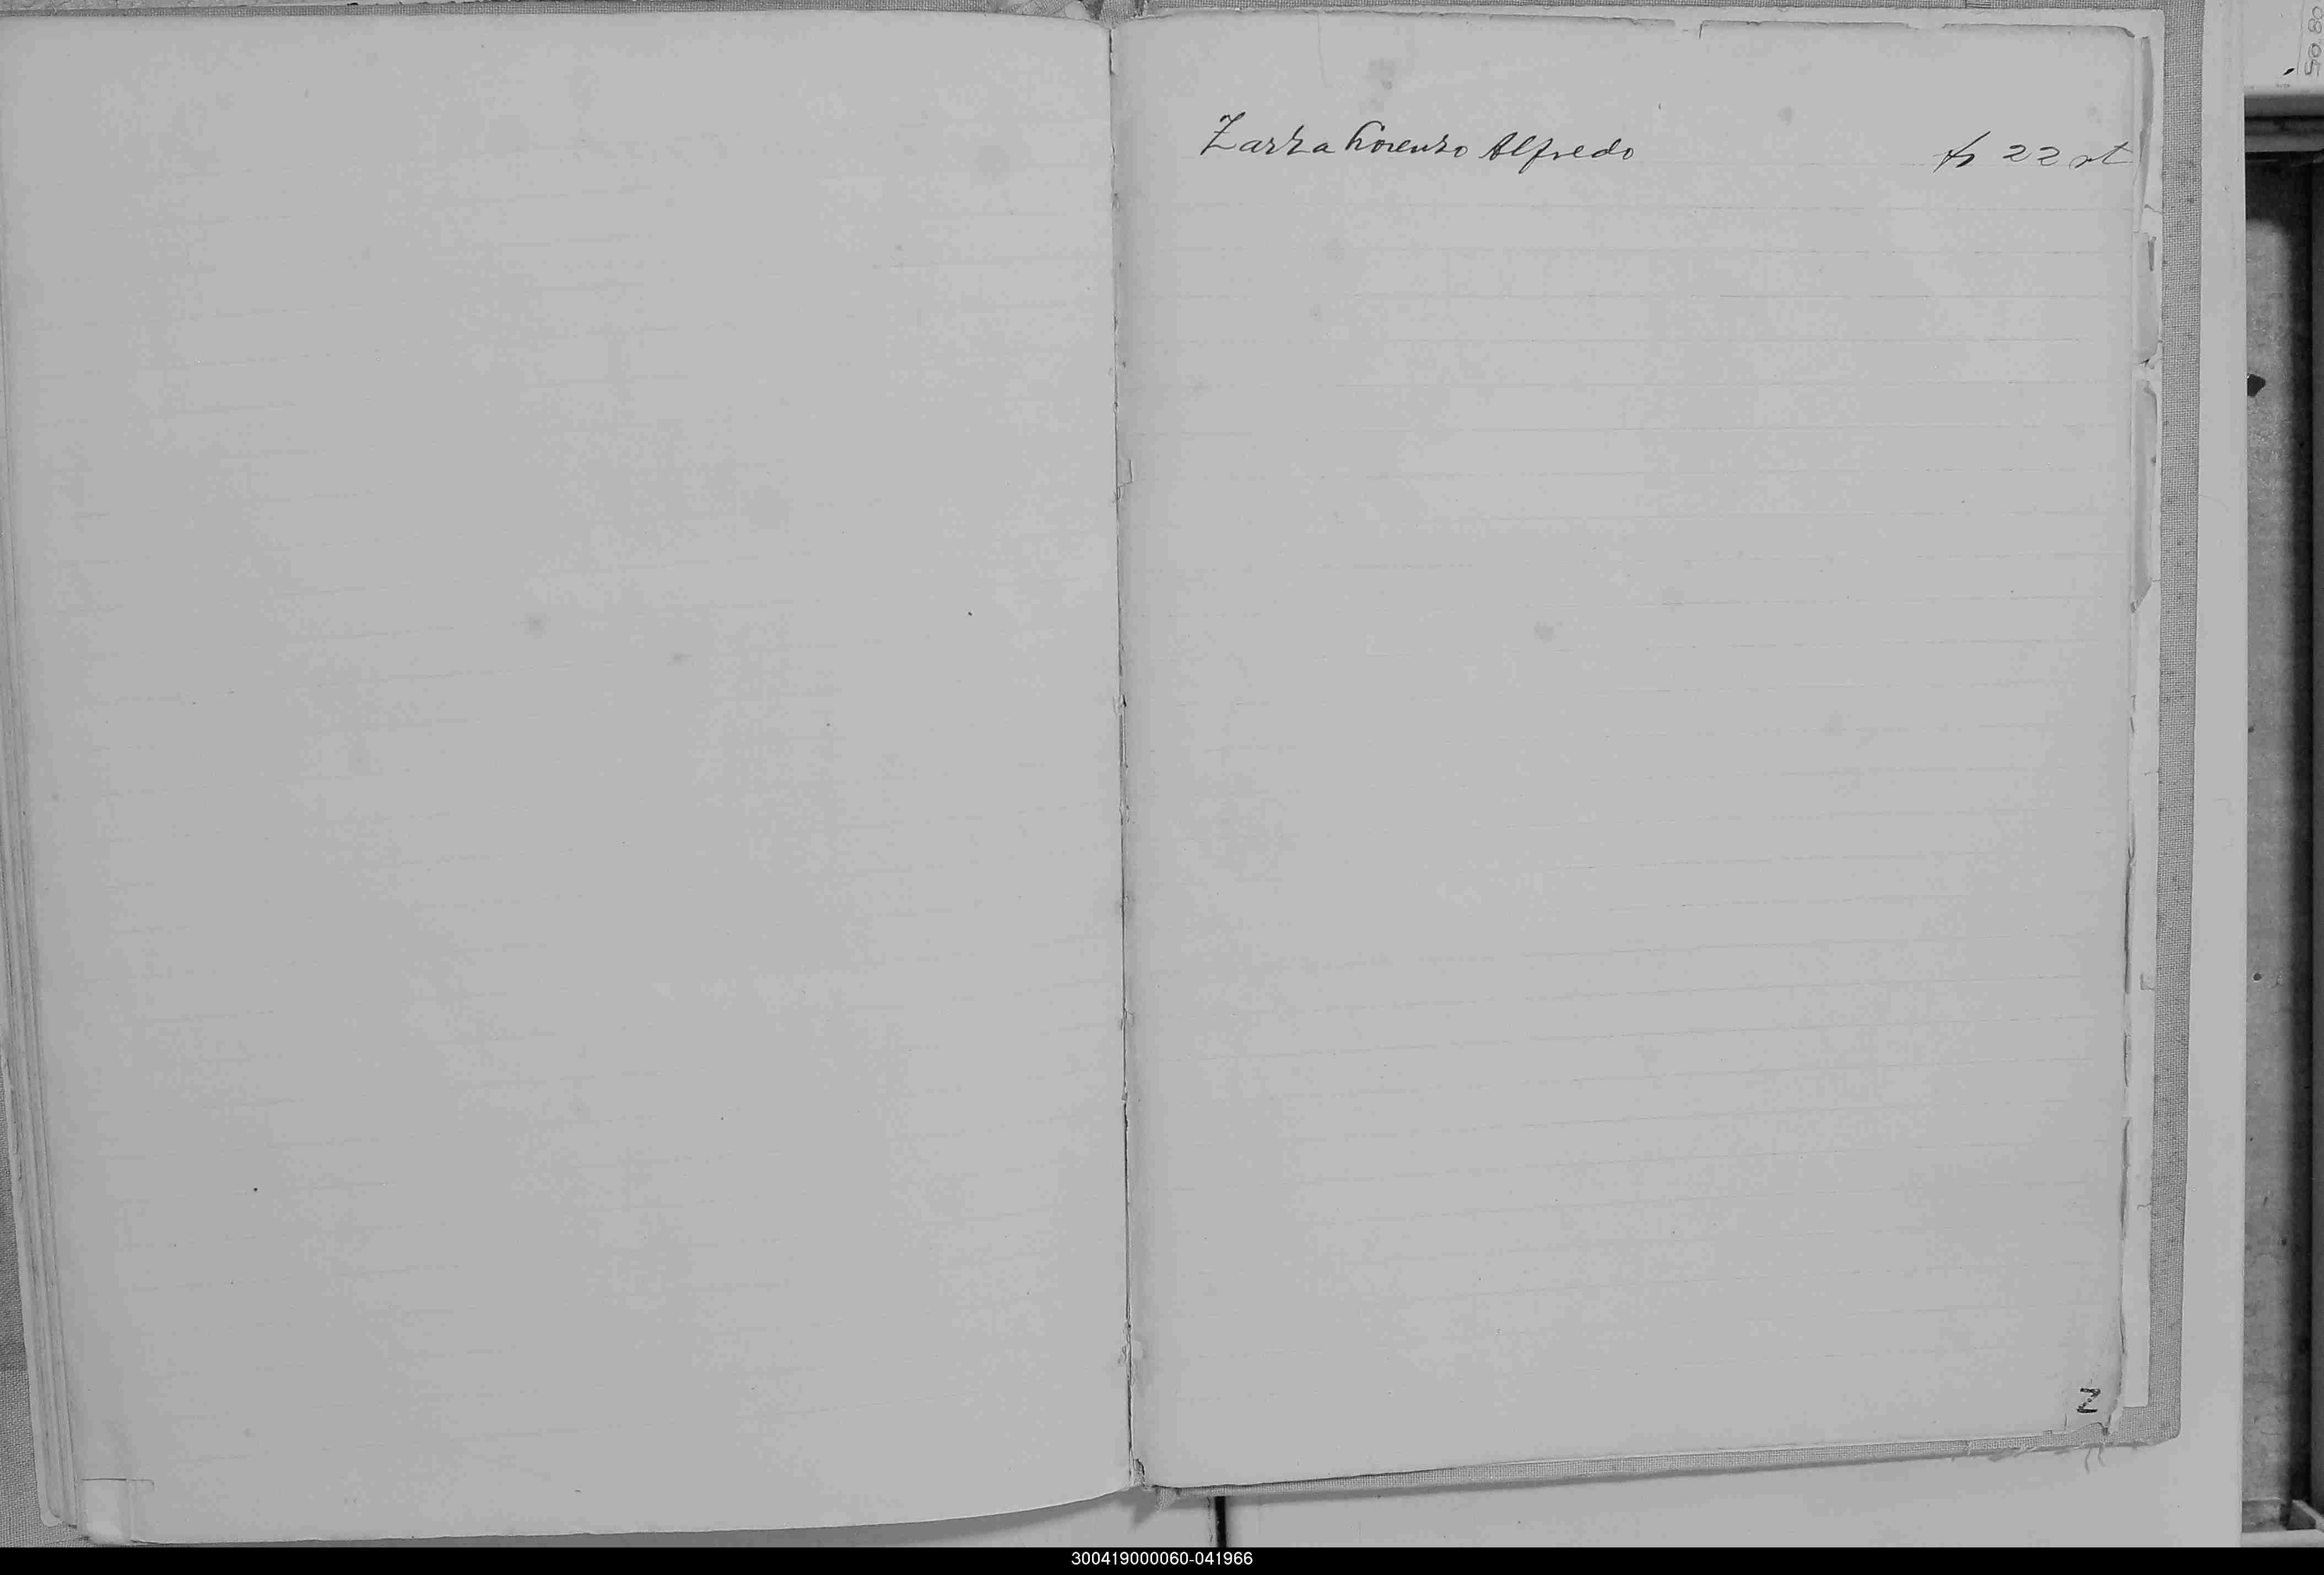 Zarza Lorenzo Alfredo fs 22 vt
Z
300419000060-041966